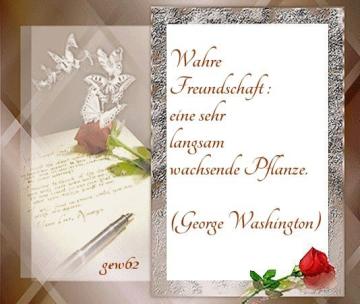 Wahre
Freundschaft :
eine sehr
langsam
wachsende Pflanze.
(George Washington)
gew62